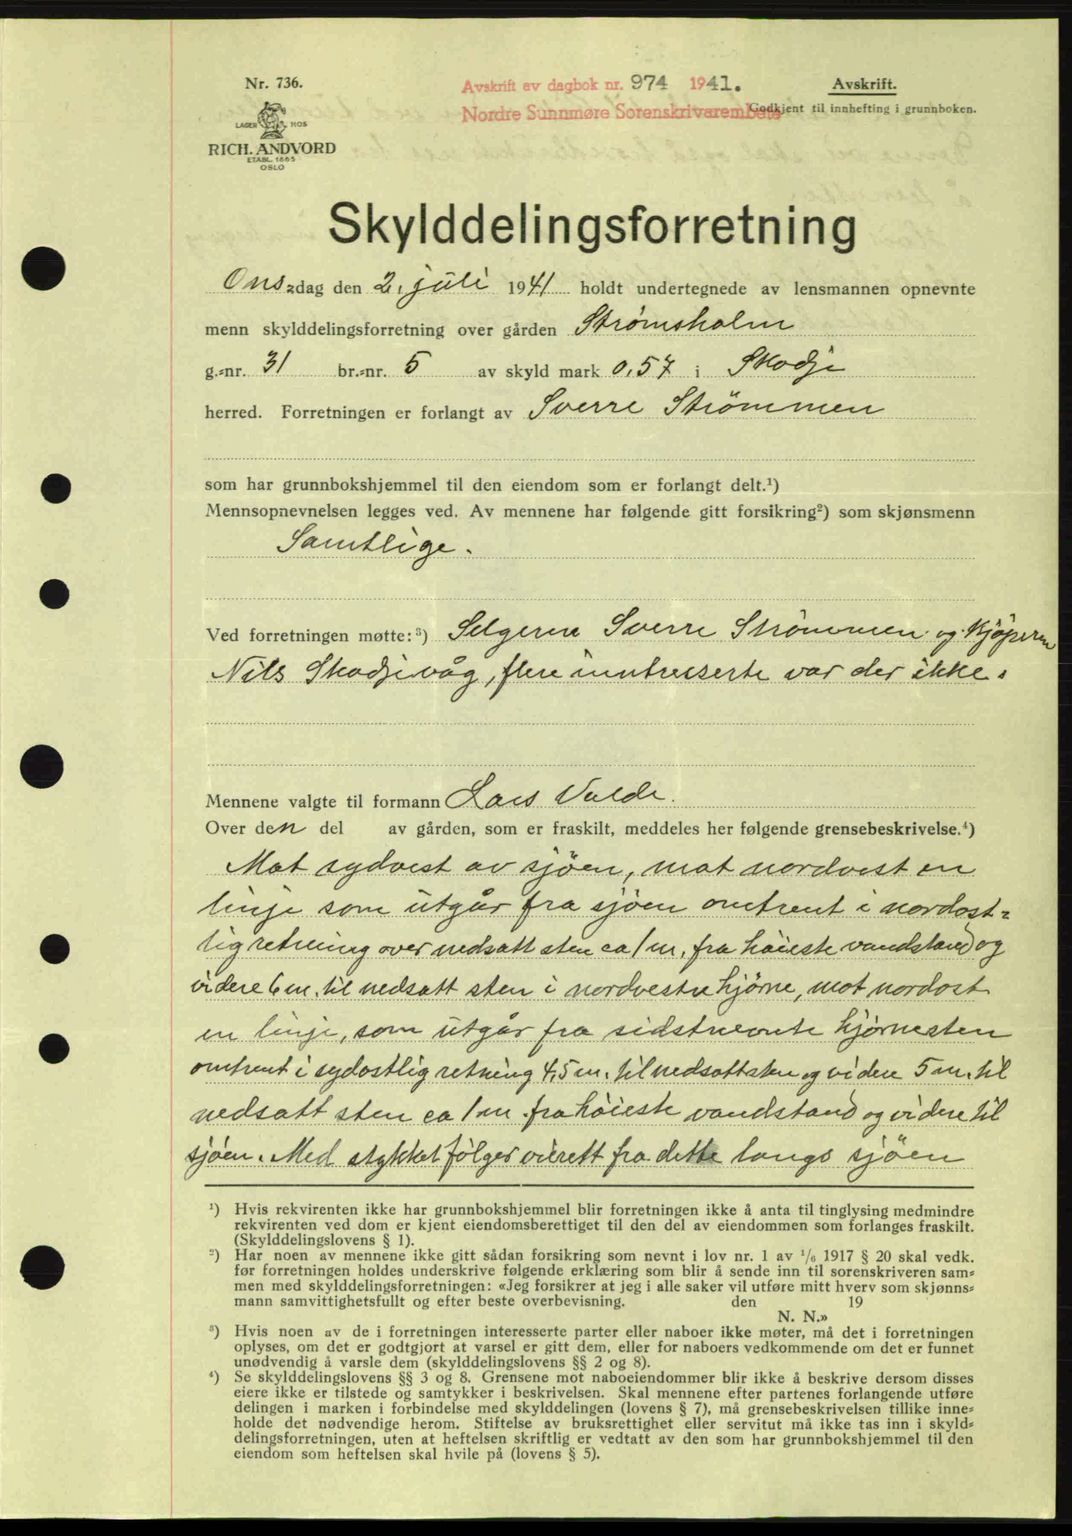 Nr. 736.
LAGER HOS
RICH. ANDVORD
ETABL. 1865
OSLO
Avskrift av dagbok nr. 974 1941.
Nordre Sunnmøre Sorenskriverembete
Avskrift.
Godkjent til innhefting i grunnboken.
Skylddelingsforretning
Onsdag den 2. juli 1941 holdt undertegnede av lensmannen opnevnte
menn skylddelingsforretning over gården Strømsholm
g.-nr. 31 br.-nr. 5 av skyld mark 0,57 i Skodje
herred. Forretningen er forlangt av Sverre Strömmen
som har grunnbokshjemmel til den eiendom som er forlangt delt.¹)
Mennsopnevnelsen legges ved. Av mennene har følgende gitt forsikring²) som skjønsmenn
Samtlige.
Ved forretningen møtte:³) Selgeren Sverre Strömmen og Kjöperen
Nils Skodjevåg, flere inntresserte var der ikke.
Mennene valgte til formann Lars Valde.
Over den del av gården, som er fraskilt, meddeles her følgende grensebeskrivelse.⁴)
Mot sydvest av sjöen, mot nordvest en
linje som utgår fra sjöen omtrent i nordost-
lig retning over nedsatt sten ca 1 m. fra höieste vandstand og
videre 6 m. til nedsatt sten i nordvestre hjörne, mot nordost
en linje, som utgår fra sidstnevnte hjörnesten
omtrent i sydostlig retning 4,5 m. til nedsatt sten og videre 5 m. til
nedsatt sten ca 1 m. fra höieste vandstand og videre til
sjöen. Med stykket fölger veirett fra dette langs sjöen
¹) Hvis rekvirenten ikke har grunnbokshjemmel blir forretningen ikke å anta til tinglysing medmindre
rekvirenten ved dom er kjent eiendomsberettiget til den del av eiendommen som forlanges fraskilt.
(Skylddelingslovens § 1).
²) Har noen av mennene ikke gitt sådan forsikring som nevnt i lov nr. 1 av ¹/₆ 1917 § 20 skal vedk.
før forretningen holdes underskrive følgende erklæring som blir å sende inn til sorenskriveren sam-
men med skylddelingsforretningen: «Jeg forsikrer at jeg i alle saker vil utføre mitt hverv som skjønns-
mann samvittighetsfullt og efter beste overbevisning. den 19
N. N.»
³) Hvis noen av de i forretningen interesserte parter eller naboer ikke møter, må det i forretningen
oplyses, om det er godtgjort at varsel er gitt dem, eller for naboers vedkommende om det er funnet
unødvendig å varsle dem (skylddelingslovens §§ 2 og 8).
⁴) Se skylddelingslovens §§ 3 og 8. Grensene mot naboeiendommer blir ikke å beskrive dersom disses
eiere ikke er tilstede og samtykker i beskrivelsen. Skal mennene efter partenes forlangende utføre
delingen i marken i forbindelse med skylddelingen (lovens § 7), må grensebeskrivelsen tillike inne-
holde det nødvendige herom. Stiftelse av bruksrettighet eller servitut må ikke tas inn i skyld-
delingsforretningen, uten at heftelsen skriftlig er vedtatt av den som har grunnbokshjemmel til den
eiendom som heftelsen skal hvile på (lovens § 5).